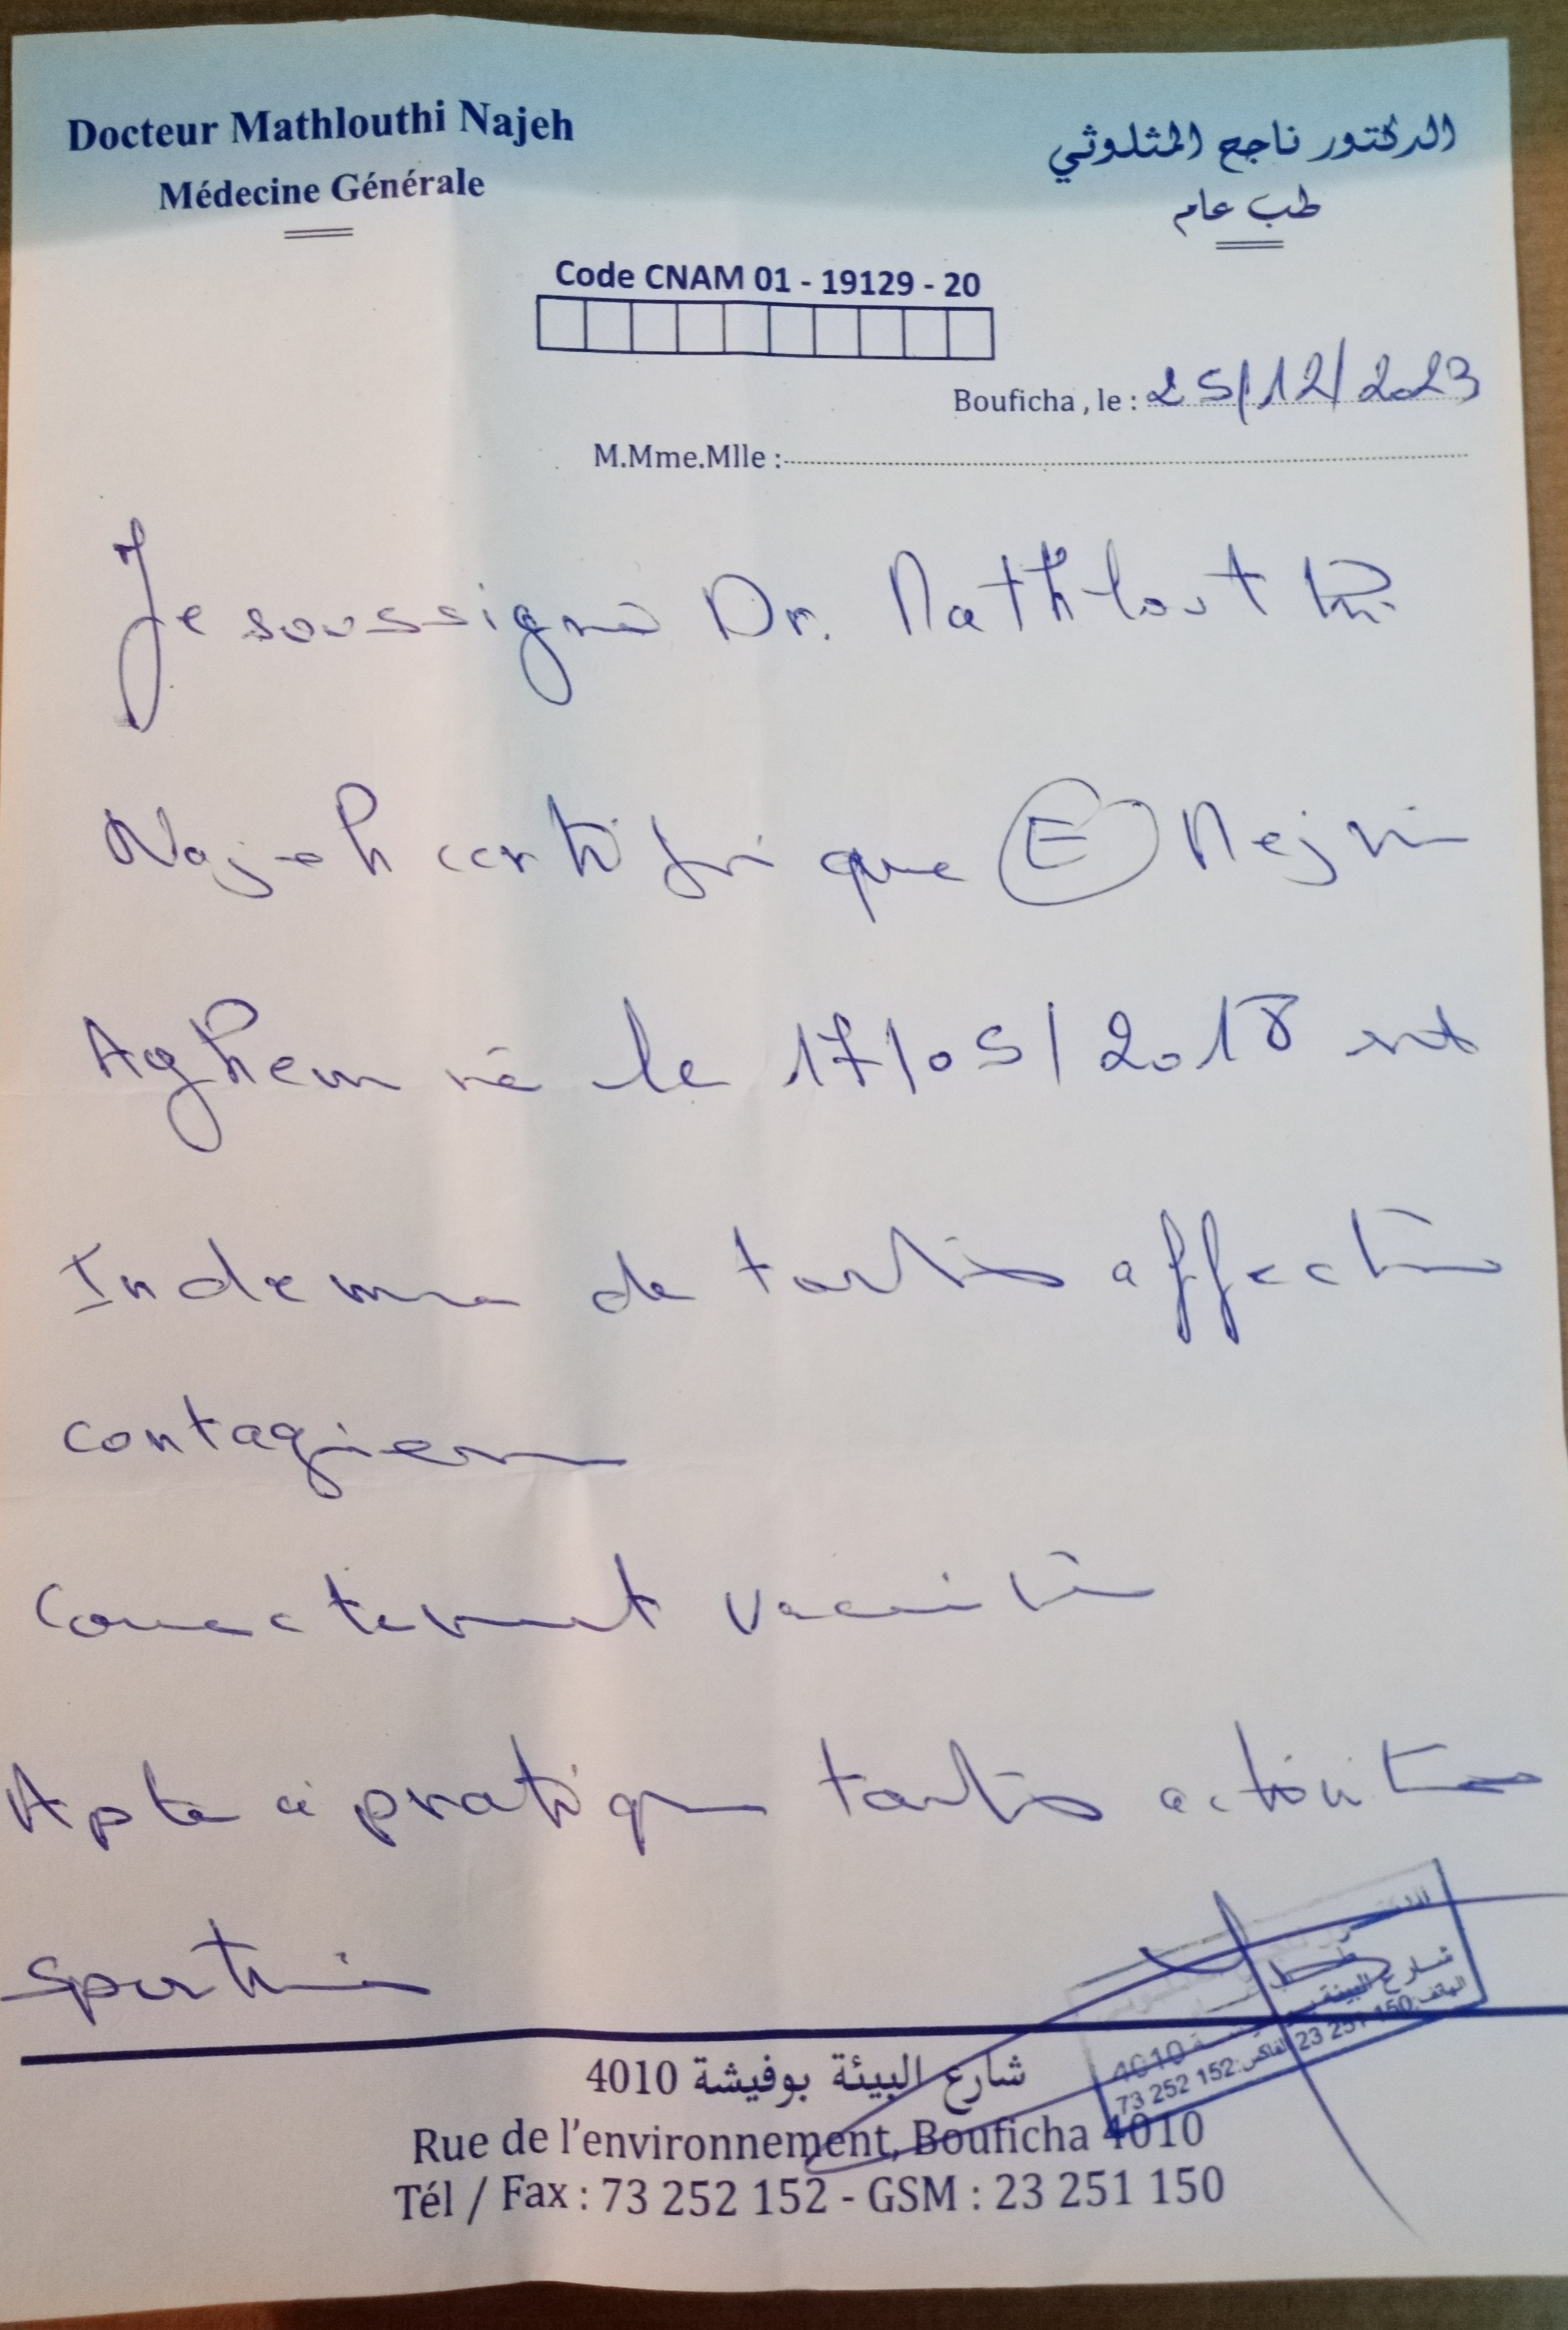 Docteur Mathlouthi Najeh
Médecine Générale
الدكتور ناجح المثلوثي
طب عام
Code CNAM 01 - 19129 - 20
Bouficha , le : 25/12/2023
M.Mme.Mlle :
Je soussigné Dr. Mathlouthi
Najeh certifie que E Nejri
Aghem né le 17/05/2018 est
Indemne de toutes affection
contagieuse
Correctement vacciné
Apte à pratiquer toutes activités
sportives
شارع البيئة بوفيشة 4010
Rue de l'environnement, Bouficha 4010
Tél / Fax : 73 252 152 - GSM : 23 251 150
شارع البيئة 4010
الهاتف: 23 251 150 الفاكس: 73 252 152